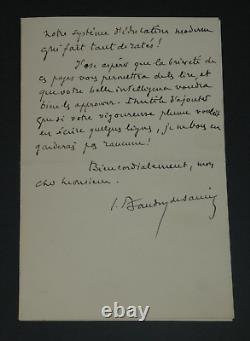 notre système d'éducation moderne
qui fait tant de ratés!
J'ose espérer que la brièveté de
ces pages vous permettra de les lire et
que votre belle intelligence voudra
bien les approuver. Inutile d'ajouter
que si votre vigoureuse plume voulait
en écrire quelques lignes, je ne vous en
garderais pas rancune!
Bien cordialement, mon
cher Monsieur.
Baudry de Saunier